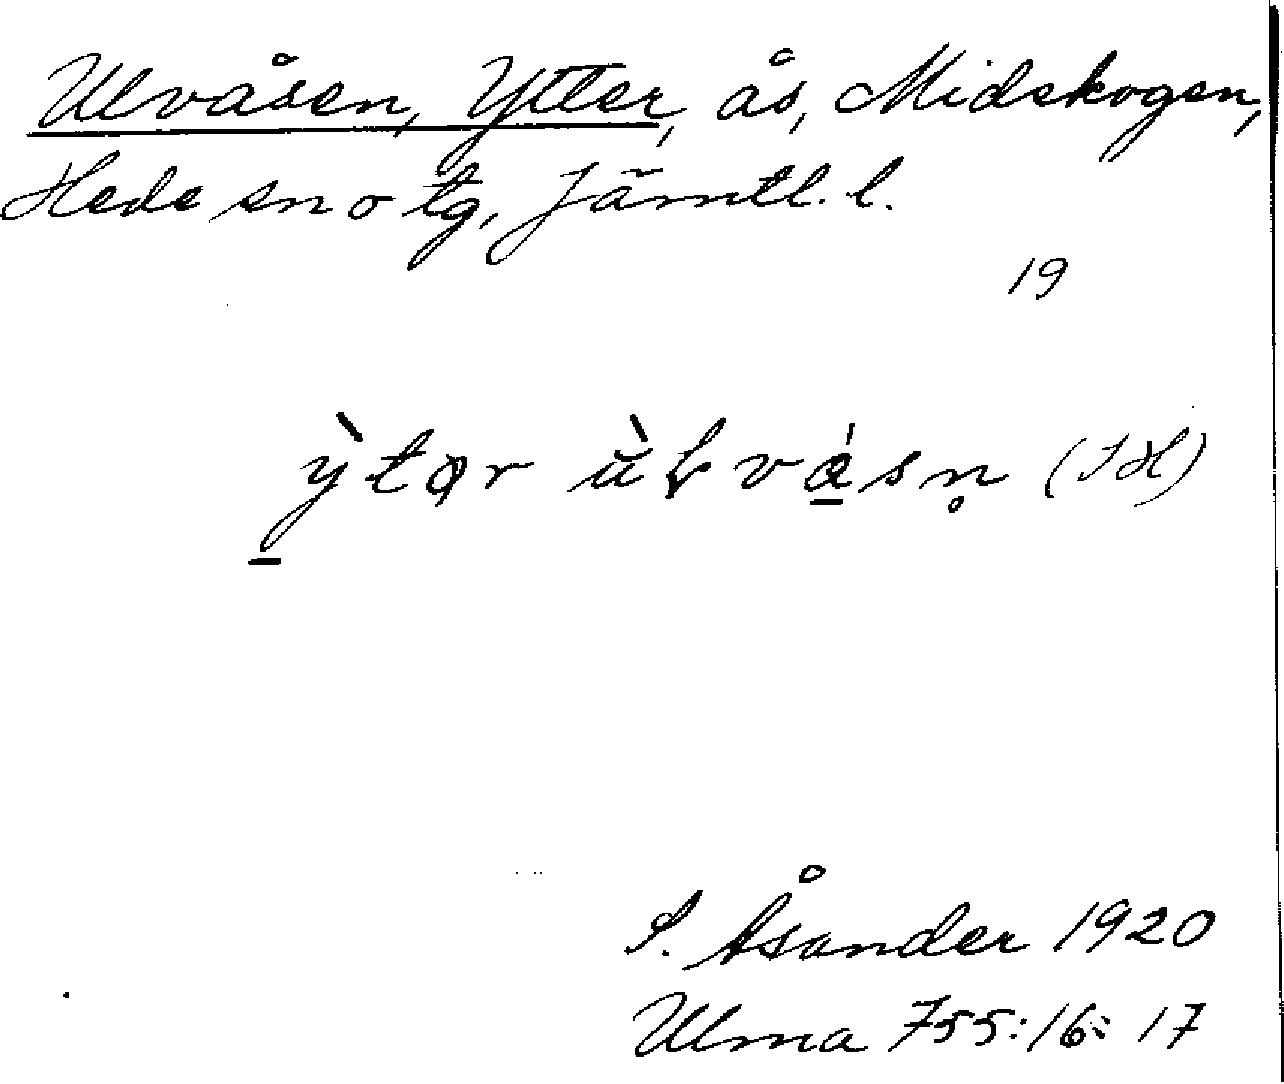 Ulvåsen, Ytter, ås, Midskogen,
Hede sn o tg, Jämtl. l.
19
ỳtər ùɫvásn̥
S. Åsander 1920
Ulma 755:16: 17